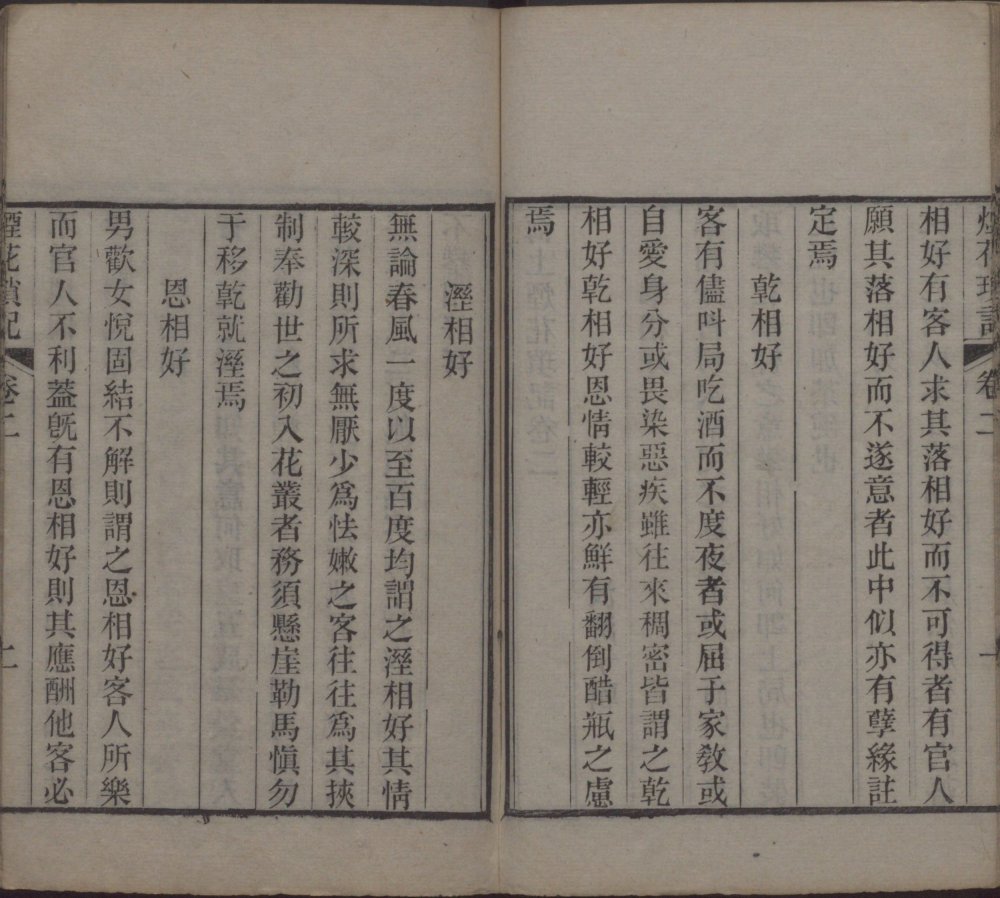 煙花瑣記
卷二
十
相好有客人求其落相好而不可得者有官人
願其落相好而不遂意者此中似亦有孽緣註
定焉
乾相好
客有儘呌局吃酒而不度夜者或屈于家敎或
自愛身分或畏染惡疾雖往來稠密皆謂之乾
相好乾相好恩情較輕亦鮮有翻倒醋瓶之慮
焉
溼相好
無論春風一度以至百度均謂之溼相好其情
較深則所求無厭少爲怯嫩之客往往爲其挾
制奉勸世之初入花叢者務須懸崖勒馬愼勿
于移乾就溼焉
恩相好
男歡女悅固結不解則謂之恩相好客人所樂
而官人不利葢旣有恩相好則其應酬他客必
煙花瑣記
卷二